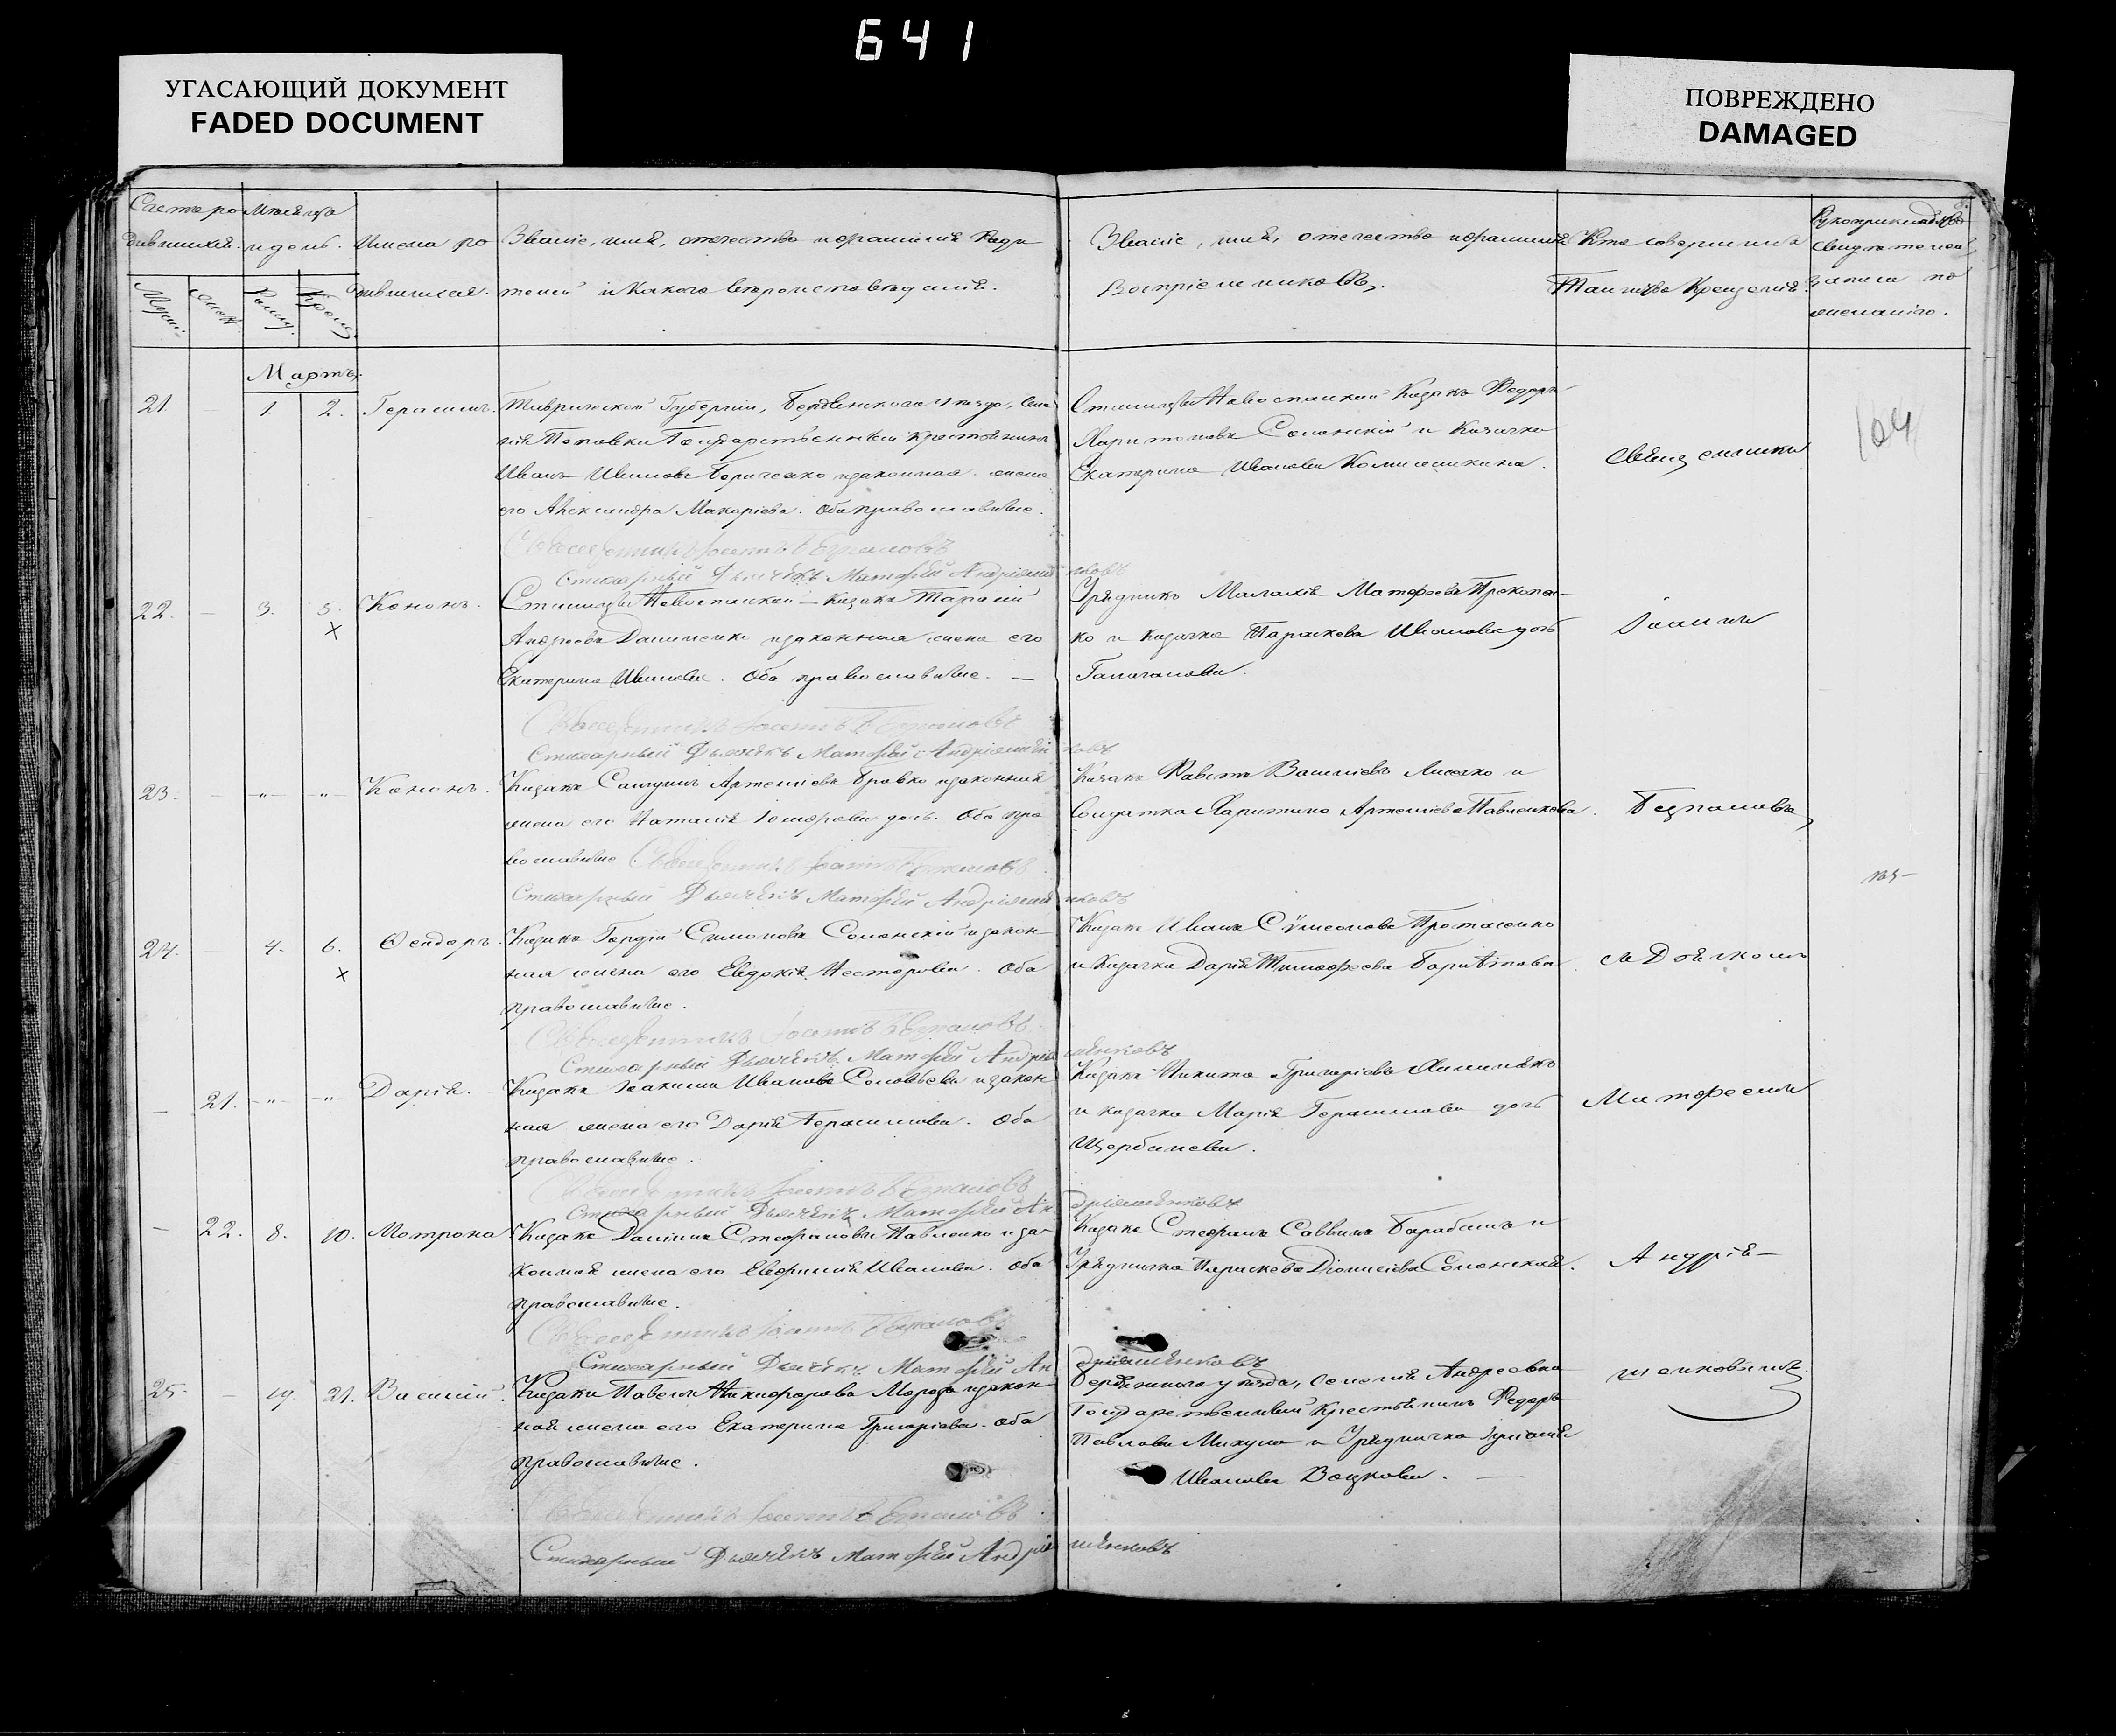 641
УГАСАЮЩИЙ ДОКУМЕНТ
FADED DOCUMENT
ПОВРЕЖДЕНО
DAMAGED
Счетъ ро Мѣсяцъ
дившихся. и день. Имена ро Званіе, имя, отечество и фамилія Роди
дившихся. телей и какого вѣроисповѣданія.
Званіе, имя, отечество и фамилія
Воспріемниковъ.
Кто совершилъ
Таинство Крещенія.
Рукоприкладство
свидѣтелей
записи по
желанію.
Мартъ.
21. 1. 2. Герасимъ. Таврической Губерніи, Бердянскаго уѣзда,
Поповки Государственный крестьянинъ
Иванъ Ивановъ и законная жена
его Александра Макаріева. Оба православные.
Священникъ Іоаннъ Безпаловъ
Стихарный Дьячёкъ Матфѣй Андріяшенковъ
Станицы Новоспаской Казакъ Федоръ
Харитоновъ Солонскій и Казачка
Екатерина Иванова
Священникъ
104
22. — 3. 5. Кононъ. Станицы Новоспаской — Казакъ Тарасій
Андреевъ Даниленко и законная жена его
Екатерина Иванова. Оба православные. —
Священникъ Іоаннъ Безпаловъ
Стихарный Дьячёкъ Матфѣй Андріяшенковъ
Урядникъ Малахія Матфеевъ Прокопен-
ко и казачка Параскева Иванова дочь
Іоаннъ
23. — „ „ Кононъ. Казакъ Артеміевъ Бравко и законная
жена его Наталія дочь. Оба пра
вославные. Священникъ Іоаннъ Безпаловъ
Стихарный Дьячёкъ Матфѣй Андріяшенковъ
Казакъ Василіевъ Лисечко и
Солдатка Харитина Артеміева Павленкова.
Безпаловъ,
24. — 4. 6. Феидоръ. Казакъ Гордій Симоновъ Солонскій и закон-
ная жена его Евдокія Несторова. Оба
православные.
Священникъ Іоаннъ Безпаловъ
Стихарный Дьячёкъ Матфѣй Андріяшенковъ
Казакъ Иванъ Сѵмеоновъ Протасенко
и Казачка Дарія Тимофеева
съ Дьячкомъ
— 21. „ „ Дарія. Казакъ Іоакимъ Ивановъ Соловьевъ и закон
ная жена его Дарія Герасимова. Оба
православные.
Священникъ Іоаннъ Безпаловъ
Стихарный Дьячёкъ Матфѣй Андріяшенковъ
Казакъ Никита Григоріевъ
и казачка Марія Герасимова дочь
Щербакова.
Матфеемъ
— 22. 8. 10. Матрона Казакъ Даніилъ Стефановъ Павленко и за-
конная жена его Евфимія Иванова. Оба
православные.
Священникъ Іоаннъ Безпаловъ
Стихарный Дьячёкъ Матфѣй Андріяшенковъ
Казакъ Стефанъ Саввинъ Барабашъ и
Урядничка Параскева Діонисіева Солонская.
Андрія-
25. — 19 21. Василій. Казакъ Павелъ Никифоровъ Мороза и закон
ная жена его Екатерина Григоріева. Оба
православные.
Священникъ Іоаннъ Безпаловъ
Стихарный Дьячёкъ Матфѣй Андріяшенковъ
Бердянскаго уѣзда, селенія Андреевки
Государственный Крестьянинъ Федоръ
Павловъ Микула и Урядничка Іуліанія
Иванова Воцкова. —
шенковымъ.